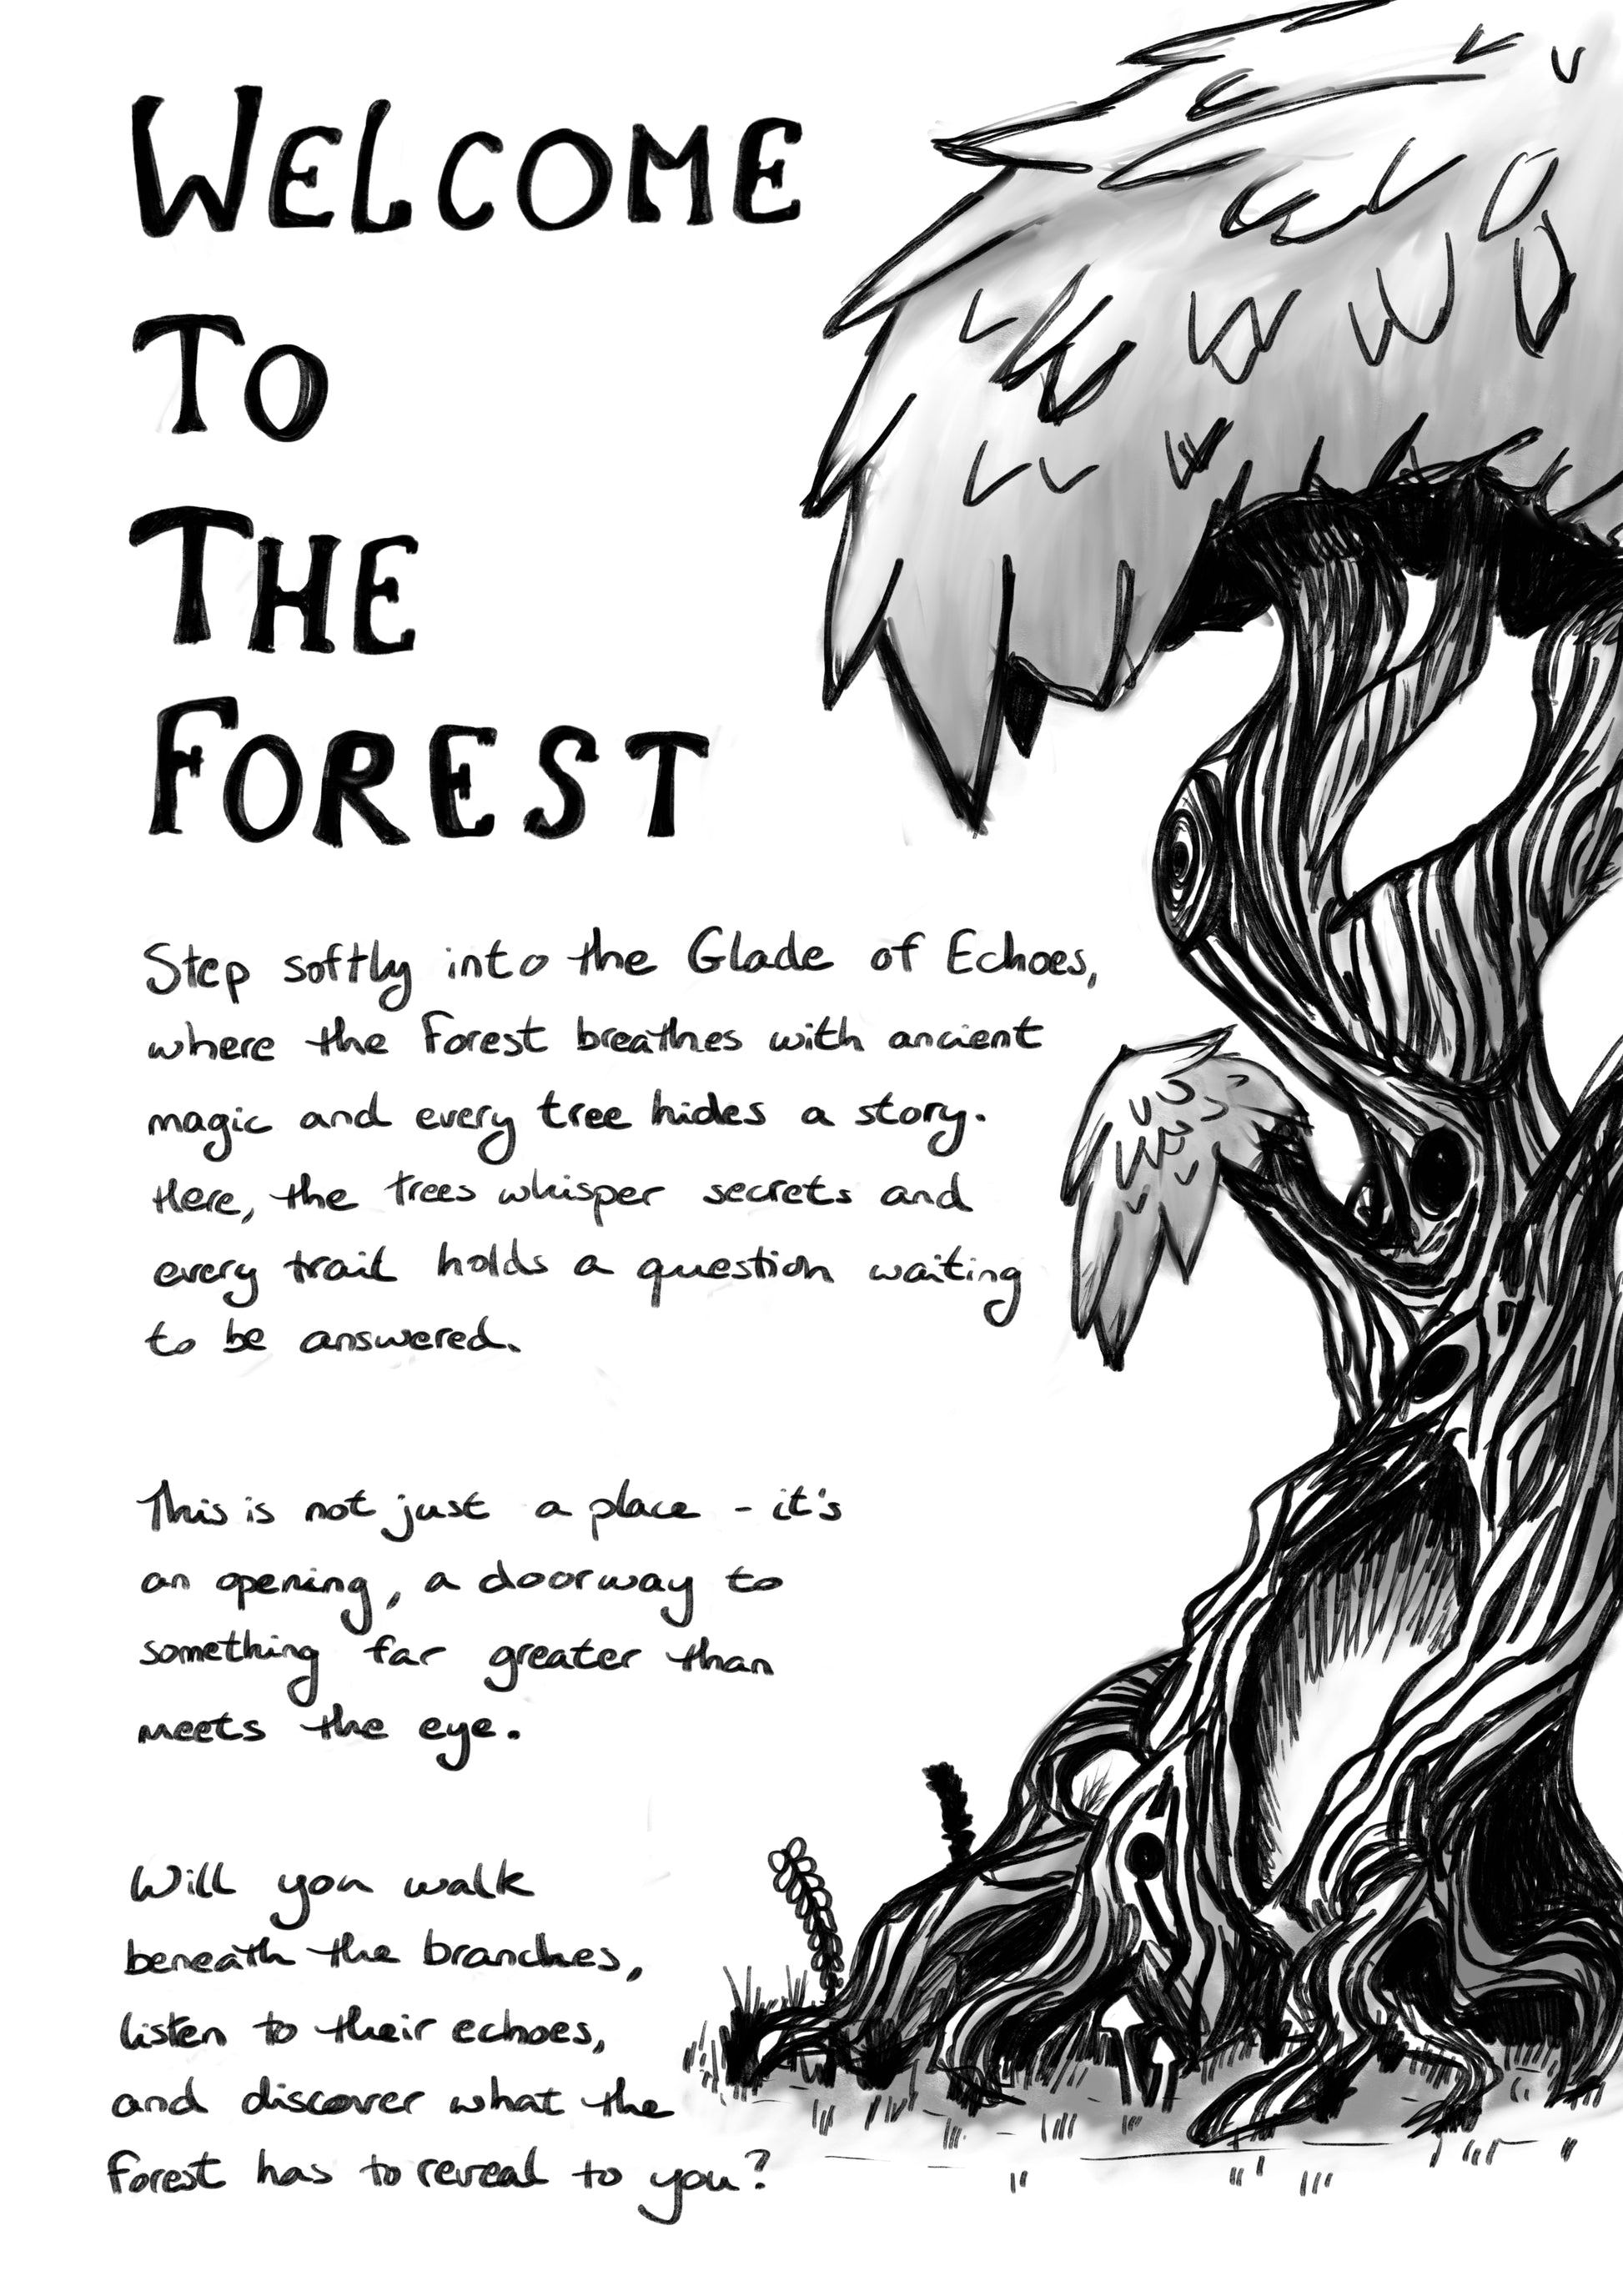 WELCOME
TO
THE
FOREST
Step softly into the Glade of Echoes,
where the Forest breathes with ancient
magic and every tree hides a story.
Here, the trees whisper secrets and
every trail holds a question waiting
to be answered.
This is not just a place - it's
an opening, a doorway to
something far greater than
meets the eye.
Will you walk
beneath the branches,
listen to their echoes,
and discover what the
Forest has to reveal to you?